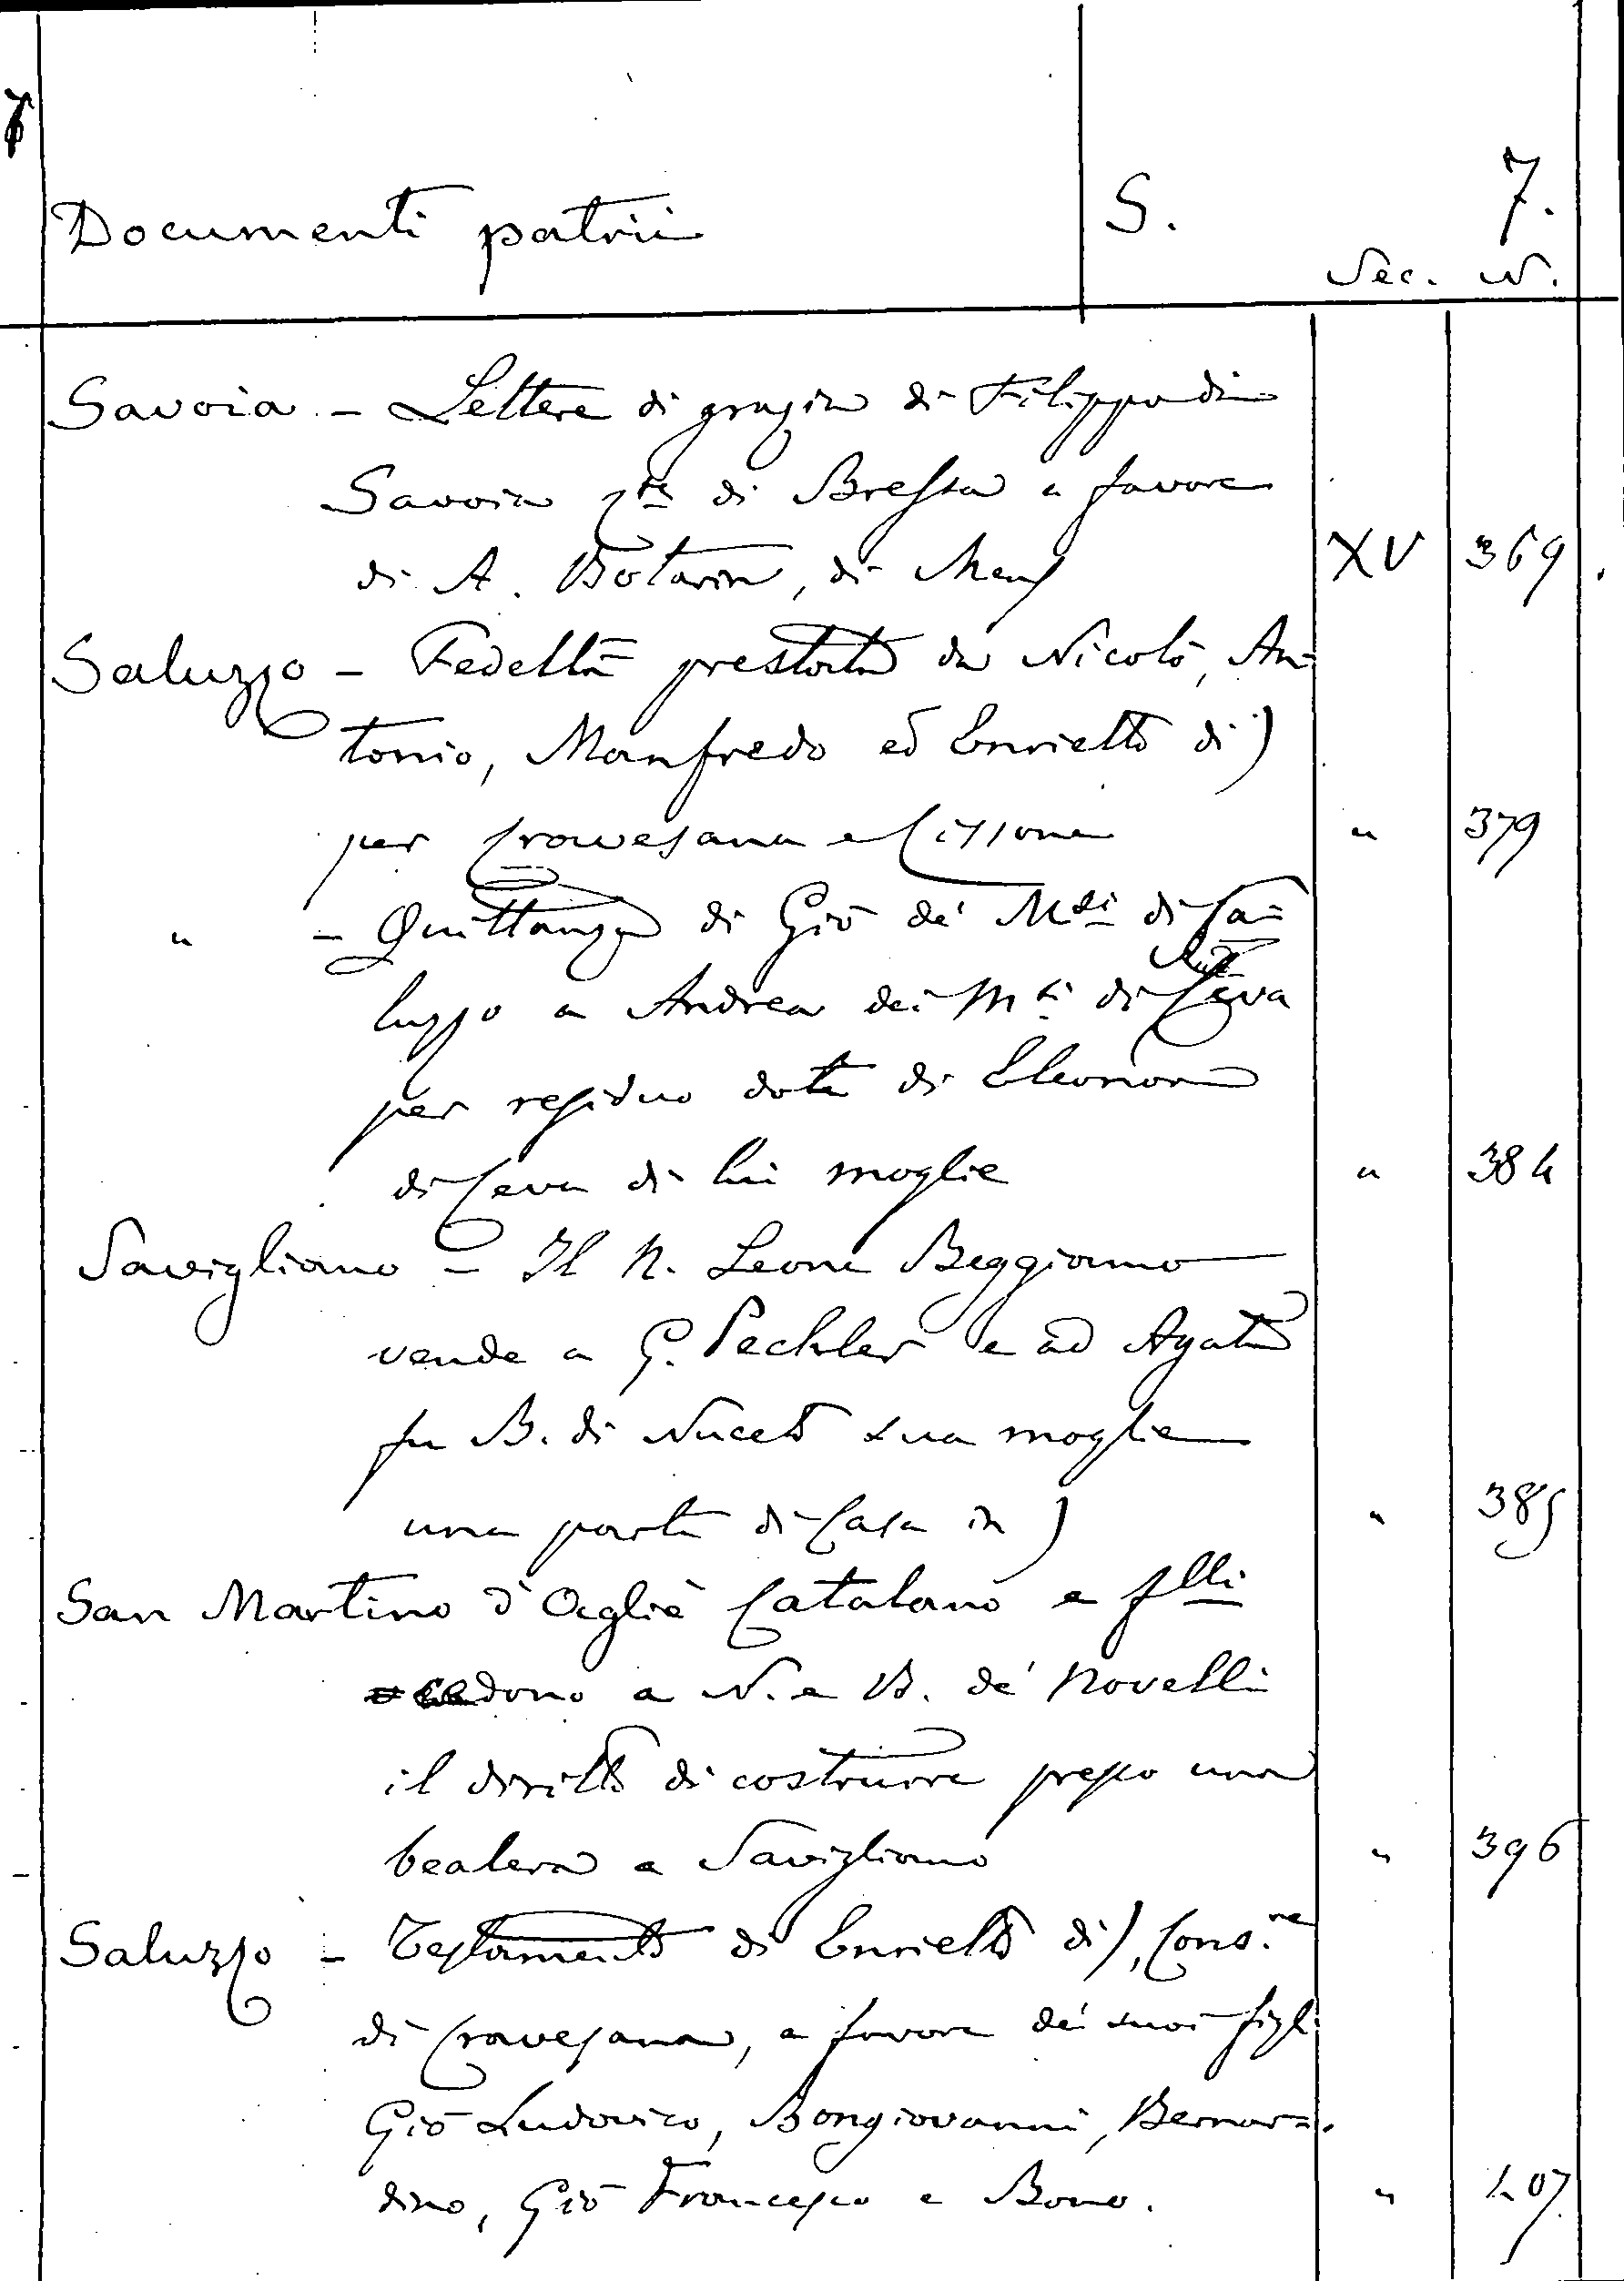 7
Documenti patrii S. 7.
Sec. N.
Savoia - Lettere di grazia di Filippo di
Savoia Cte di Bressa a favore
di A. Botarin, di XV 369
Saluzzo - Fedeltà prestata da Nicolò, An-
tonio, Manfredo ed Enrietto di )
per Cravesana e Cissone " 379
" - Quittanza di Gio de' Msi di Sa-
luzzo a Andrea dei Msi di Ceva
per residuo dote di Eleonora
di Ceva di lui moglie " 384
Savigliano - Il N. Leone Beggiamo
vende a G. Pechler e ad Agata
fu B. di Nuceto sua moglie
una parte di Casa in ) " 385
San Martino d'Agliè Catalano e flli
cedono a N. e B. de' Novelli
il diritto di costruire presso una
bealera a Savigliano " 396
Saluzzo - Testamento di Enrietto di ), Cons.re
di Cravesana, a favore de' suoi figli
Gio Ludovico, Bongiovanni, Bernar-
dino, Gio Francesco e Bono. " 407